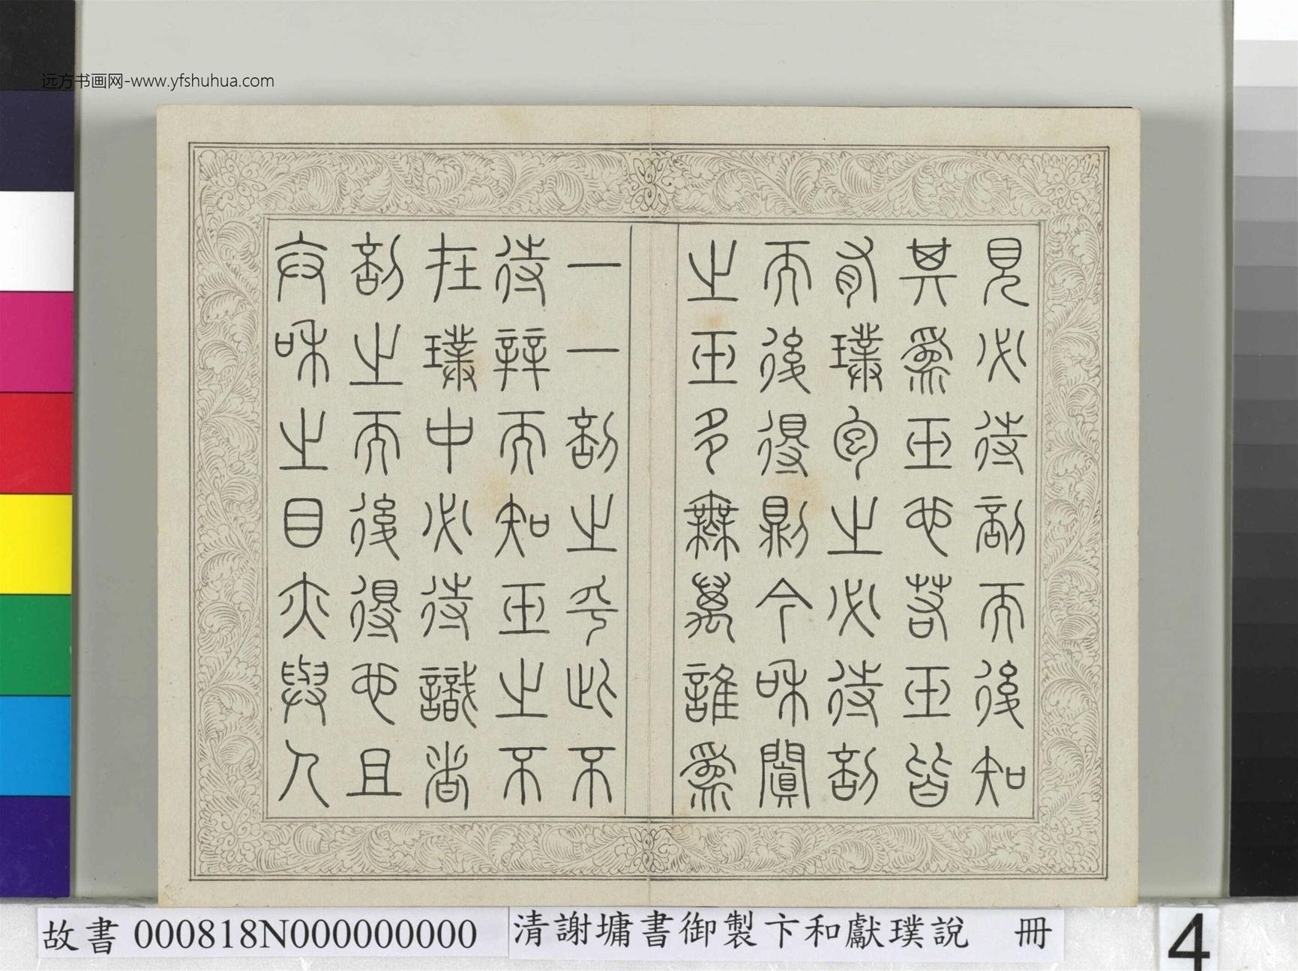 远方书画网-www.yfshuhua.com
見必待剖而後知
其爲玉也若玉皆
有璞包之必待剖
而後得則今和闐
之玉多無萬誰爲
一一剖之乎此不
待辨而知玉之不
在璞中必待識者
剖之而後得也且
卞和之目亦與人
故書 000818N000000000
清謝墉書御製卞和獻璞說 冊
4